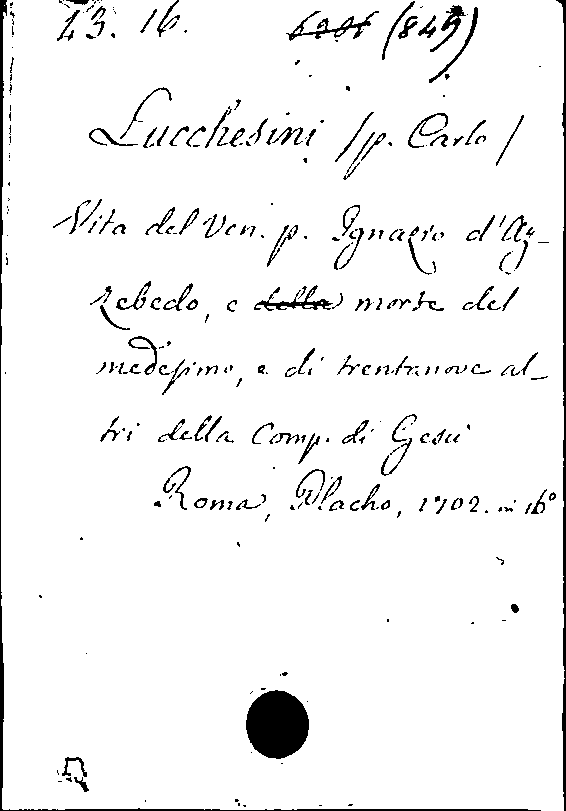 23. 16. (849)
Lucchesini /p. Carlo/
Vita del Ven. p. Ignazio d'Az-
zebedo, e della morte del
medesimo, e di trentanove al-
tri della Comp. di Gesù
Roma, Placho, 1702. in 16°